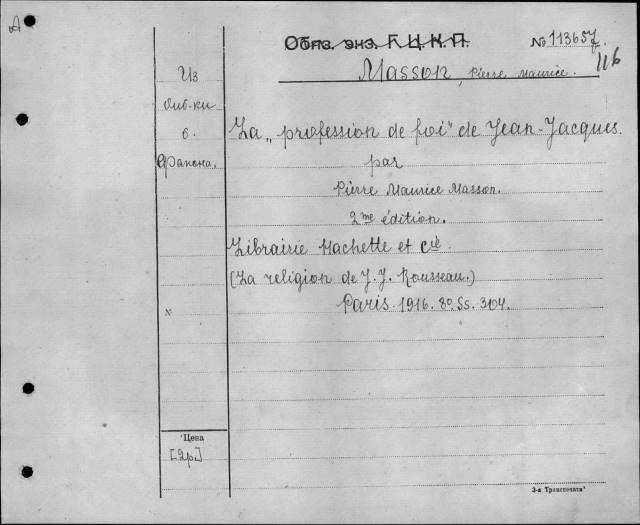 А
Обяз. экз. Г. Ц. К. П.
№ 113657
116
Masson, Pierre Maurice.
Из
биб-ки
б.
La „profession de foi“ de Jean-Jacques.
par
Pierre Maurice Masson.
2me édition.
Librairie Hachette et Cie.
(La religion de J. J. Rousseau.)
Paris. 1916. 8º. Ss. 304.
№
Цена
[2р.]
3-я Транспечать